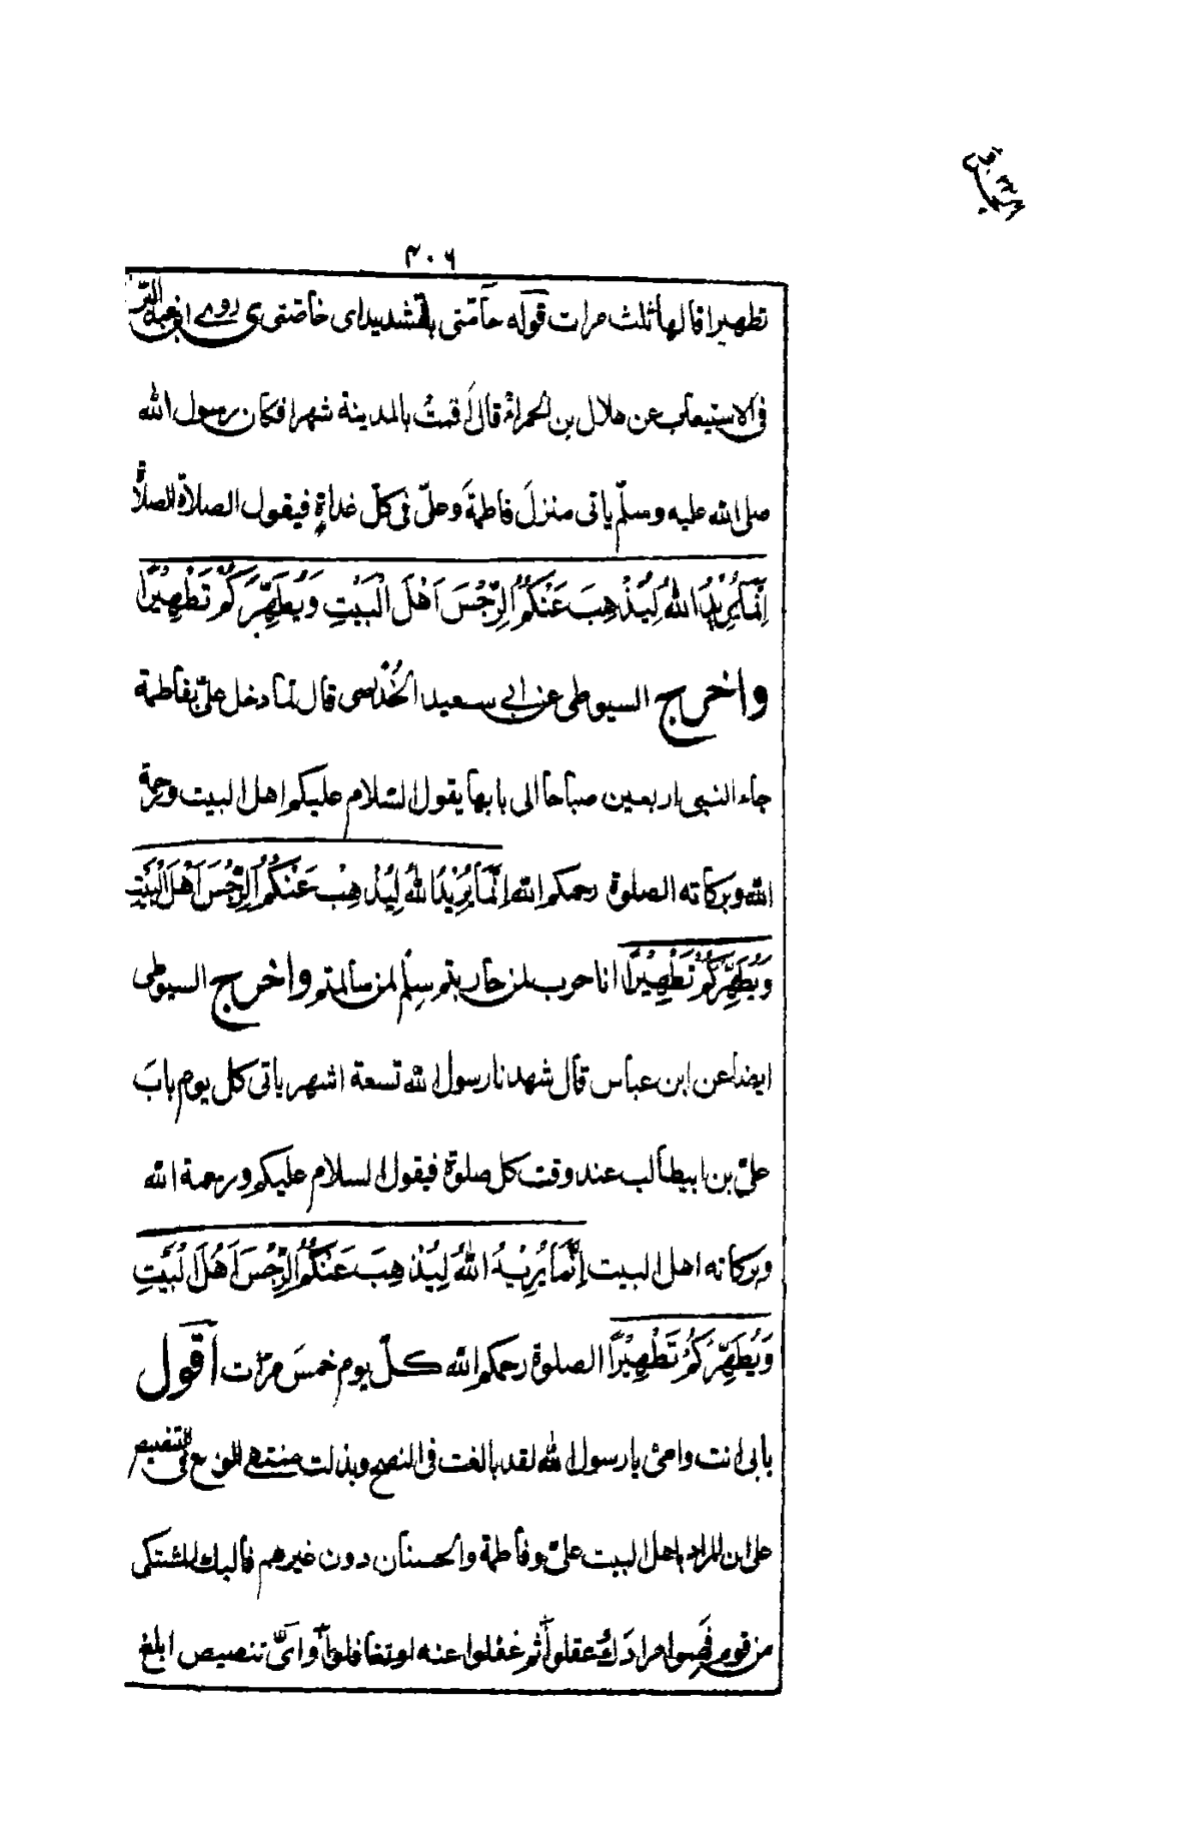 ۳۰۶
تطهيرا قالها ثلث مرات قوله حامتى بالتشديد اى خاصتى روى ابن عبد البر
فى الاستيعاب عن هلال بن الحمراء قال اقمتُ بالمدينة شهرا فكان رسول الله
صلى الله عليه وسلّم ياتى منزلَ فاطمةَ وعلىّ فى كلّ غداةٍ فيقول الصلاةَ الصلاة
اِنَّمَا يُرِيْدُ اللهُ لِيُذْهِبَ عَنْكُمُ الرِّجْسَ اَهْلَ الْبَيْتِ وَيُطَهِّرَكُمْ تَطْهِيْرًا
واخرج السيوطى عن ابى سعيد الخُدْرى قال لمّا دخل علىّ بفاطمة
جاء النبى اربعين صباحا الى بابها يقول السّلام عليكم اهل البيت ورحمة
الله وبركاته الصلوة رحمكم الله اِنَّمَا يُرِيْدُ اللهُ لِيُذْهِبَ عَنْكُمُ الرِّجْسَ اَهْلَ الْبَيْتِ
وَيُطَهِّرَكُمْ تَطْهِيْرًا انا حرب لمن حاربتم سِلم لمن سالمتم واخرج السيوطى
ايضا عن ابن عباس قال شهدنا رسول الله تسعة اشهر ياتى كل يوم بابَ
علىّ بن ابيطالب عند وقت كل صلوة فيقول السلام عليكم ورحمة الله
وبركاته اهل البيت اِنَّمَا يُرِيْدُ اللهُ لِيُذْهِبَ عَنْكُمُ الرِّجْسَ اَهْلَ الْبَيْتِ
وَيُطَهِّرَكُمْ تَطْهِيْرًا الصلوة رحمكم الله كلّ يوم خمسَ مرّات اَقُول
بابى انت وامى يا رسول الله لقد بالغت فى النصح وبذلت منتهى الوسع فى التنصيص
على ان المراد باهل البيت علىّ وفاطمة والحسنان دون غيرهم فاليك المشتكى
من قوم فهموا مرادَك وعقلوا ثم غفلوا عنه او تغافلوا واىّ تنصيص ابلغ